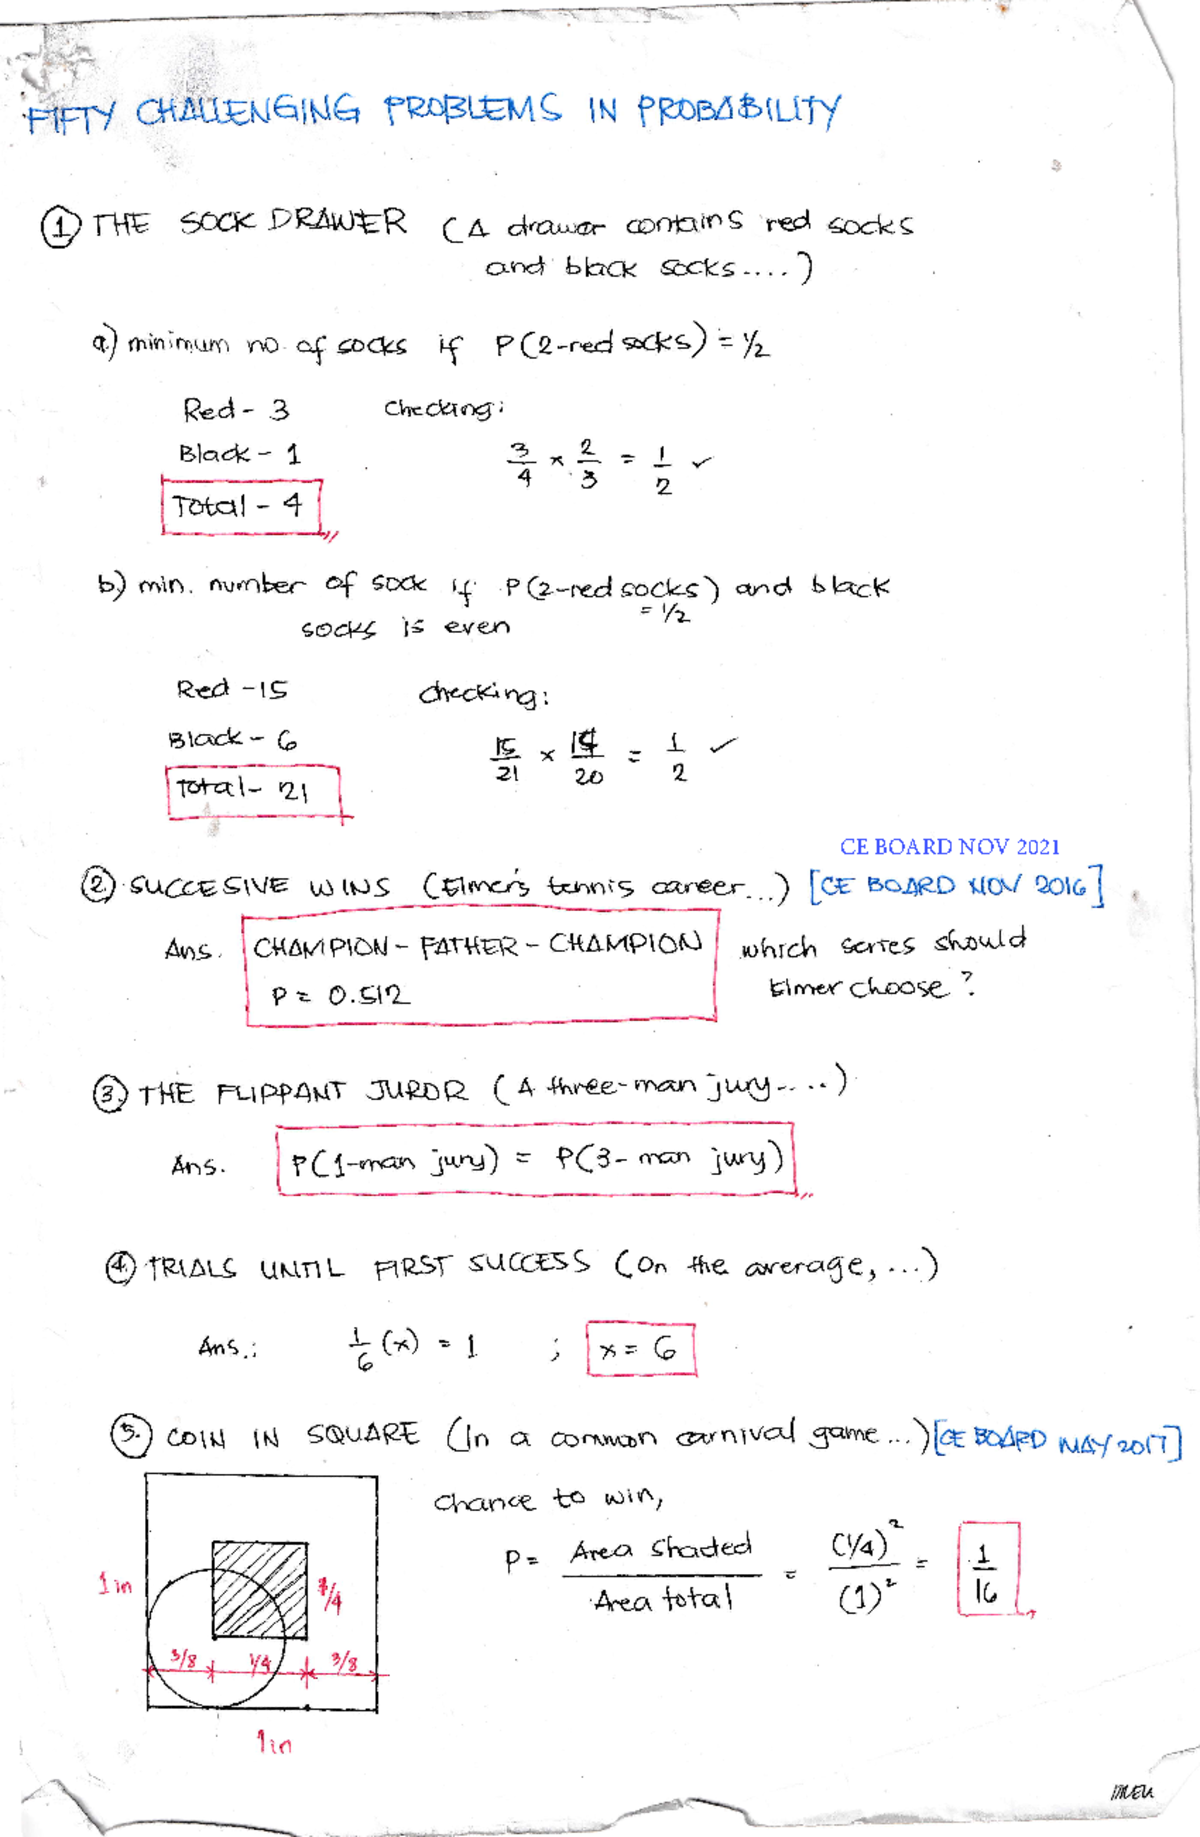 FIFTY CHALLENGING PROBLEMS IN PROBABILITY
① THE SOCK DRAWER (A drawer contains red socks
and black socks....)
a) minimum no. of socks if P(2-red socks) = 1/2
Red - 3 Checking:
Black - 1 3/4 × 2/3 = 1/2 ✓
Total - 4
b) min. number of sock if P(2-red socks) and black
= 1/2
socks is even
Red - 15 checking:
Black - 6 15/21 × 14/20 = 1/2 ✓
Total - 21
CE BOARD NOV 2021
② SUCCESIVE WINS (Elmer's tennis career...) [CE BOARD NOV 2016]
Ans. CHAMPION - FATHER - CHAMPION which series should
P = 0.512 Elmer choose?
③ THE FLIPPANT JUROR (A three-man jury.....)
Ans. P(1-man jury) = P(3-man jury)
④ TRIALS UNTIL FIRST SUCCESS (On the average, ...)
Ans.: 1/6 (x) = 1 ; x = 6
⑤ COIN IN SQUARE (In a common carnival game...) [CE BOARD MAY 2017]
chance to win,
P = Area shaded / Area total = (1/4)² / (1)² = 1/16
1 in
1/4
3/8 1/4 3/8
1 in